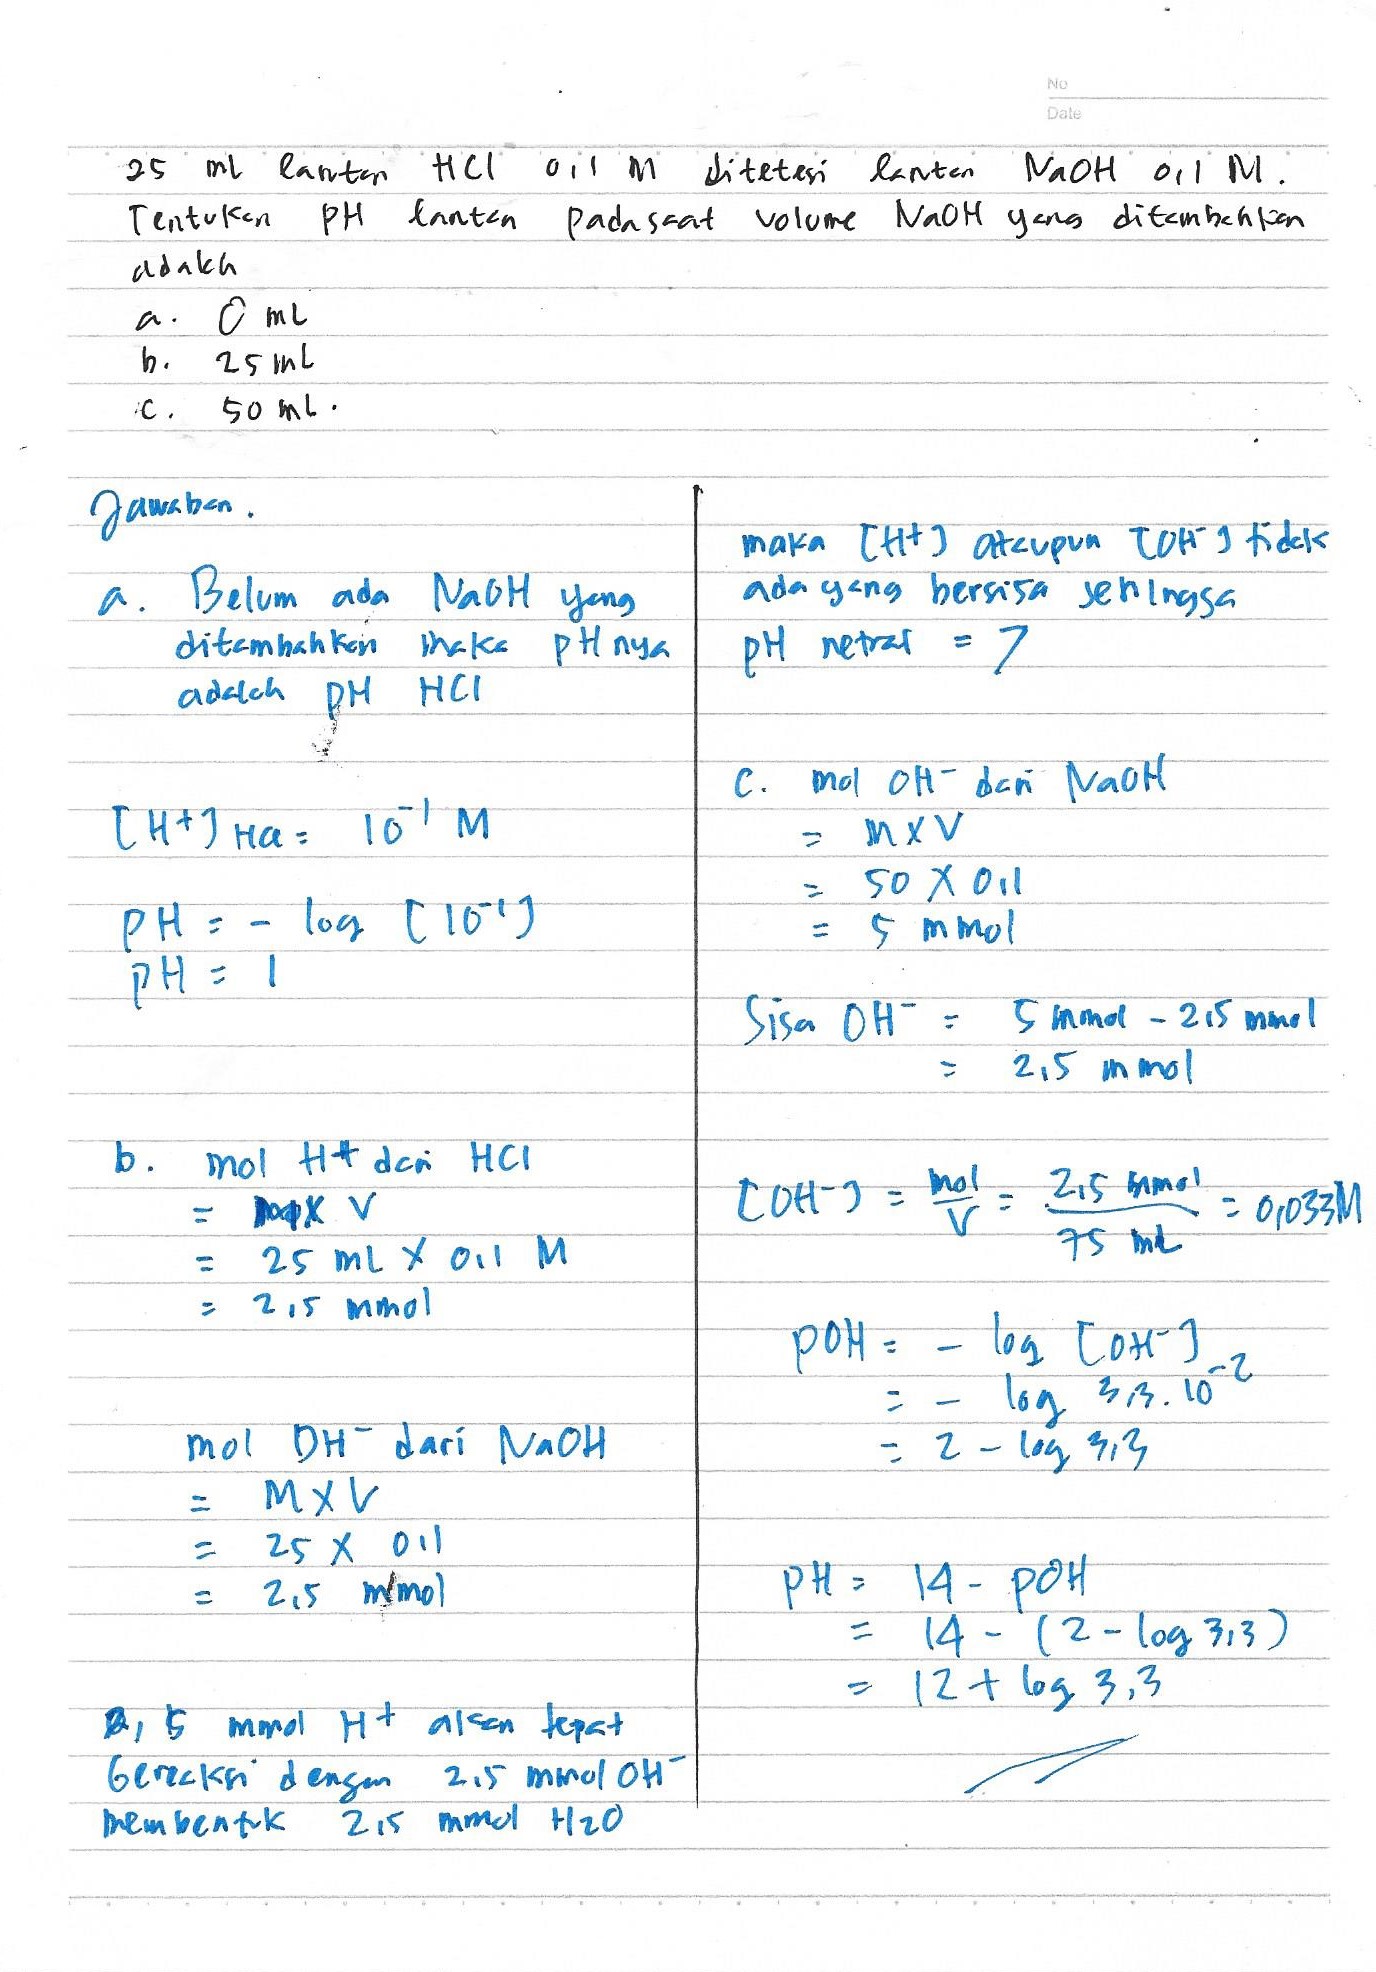 No
Date
25 mL larutan HCl 0,1 M ditetesi larutan NaOH 0,1 M.
Tentukan PH larutan pada saat volume NaOH yang ditambahkan
adalah
a. 0 mL
b. 25 mL
c. 50 mL.
Jawaban.
a. Belum ada NaOH yang
ditambahkan maka pH nya
adalah pH HCl
[H+] HCl = 10⁻¹ M
PH = - log [10⁻¹]
PH = 1
b. mol H+ dari HCl
= M x V
= 25 mL x 0,1 M
= 2,5 mmol
mol OH⁻ dari NaOH
= M x V
= 25 x 0,1
= 2,5 mmol
2,5 mmol H+ akan tepat
bereaksi dengan 2,5 mmol OH⁻
membentuk 2,5 mmol H2O
maka [H+] ataupun [OH⁻] tidak
ada yang bersisa sehingga
pH netral = 7
c. mol OH⁻ dari NaOH
= M x V
= 50 x 0,1
= 5 mmol
Sisa OH⁻ = 5 mmol - 2,5 mmol
= 2,5 mmol
[OH⁻] = mol/V = 2,5 mmol/75 mL = 0,033M
POH = - log [OH⁻]
= - log 3,3. 10⁻²
= 2 - log 3,3
PH = 14 - pOH
= 14 - (2 - log 3,3)
= 12 + log 3,3